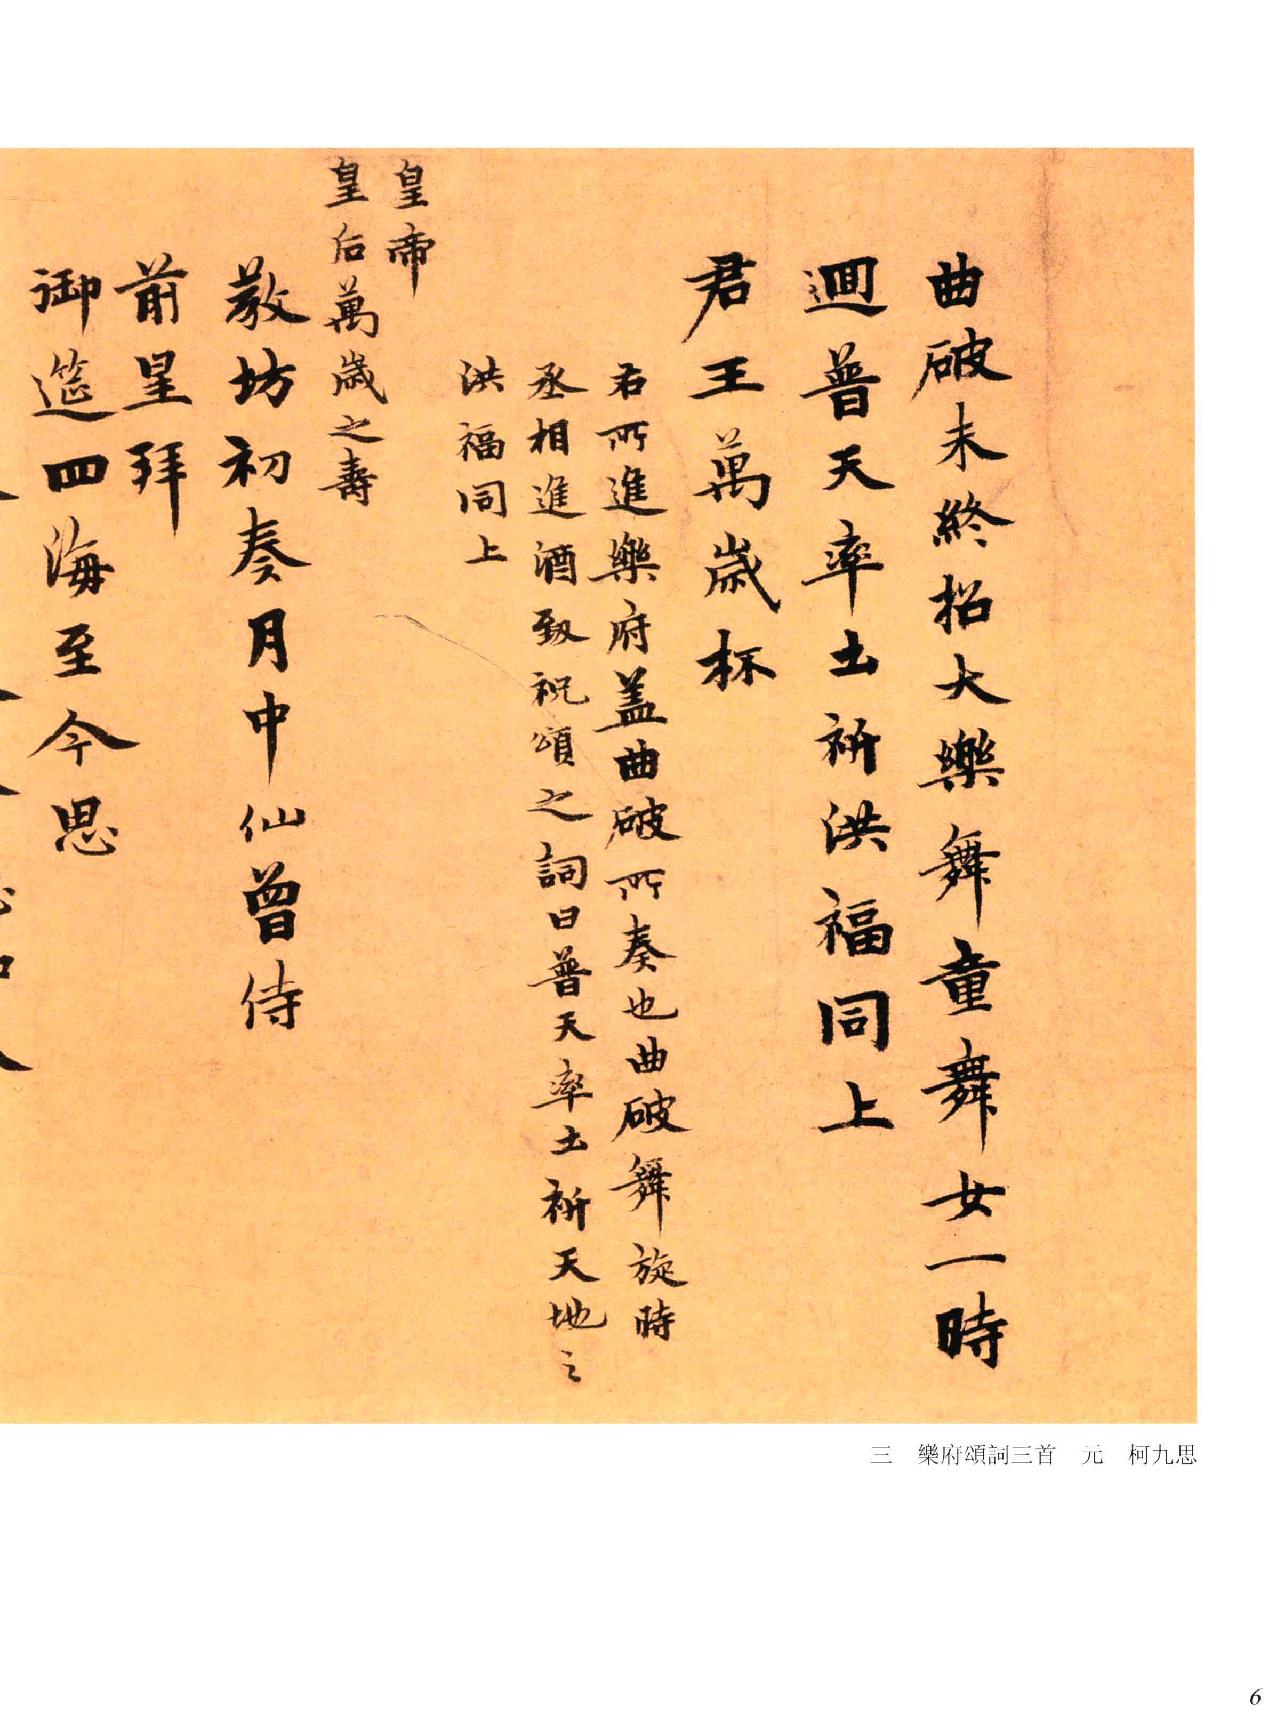 曲破未終招大樂舞童舞女一時
迴普天率土祈洪福同上
君王萬歲杯
右所進樂府盖曲破所奏也曲破舞旋時
丞相進酒致祝頌之詞曰普天率土祈天地之
洪福同上
皇帝
皇后萬歲之壽
教坊初奏月中仙曾侍
前星拜
御筵四海至今思
三 樂府頌詞三首 元 柯九思
6